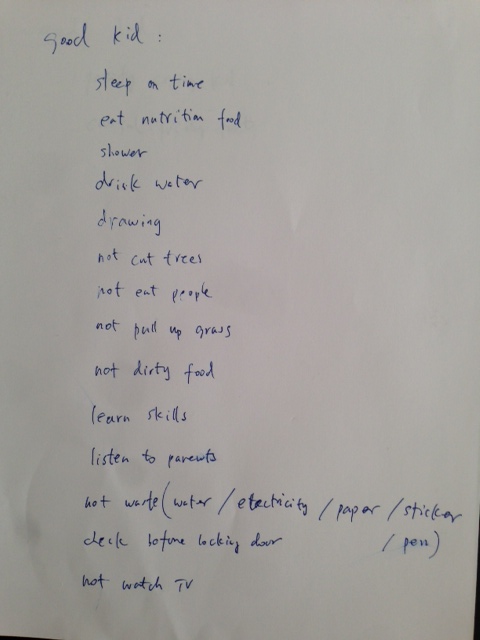 good kid :
sleep on time
eat nutrition food
shower
drink water
drawing
not cut trees
not eat people
not pull up grass
not dirty food
learn skills
listen to parents
not waste (water / electricity / paper / sticker
/ pen)
check before locking door
not watch TV